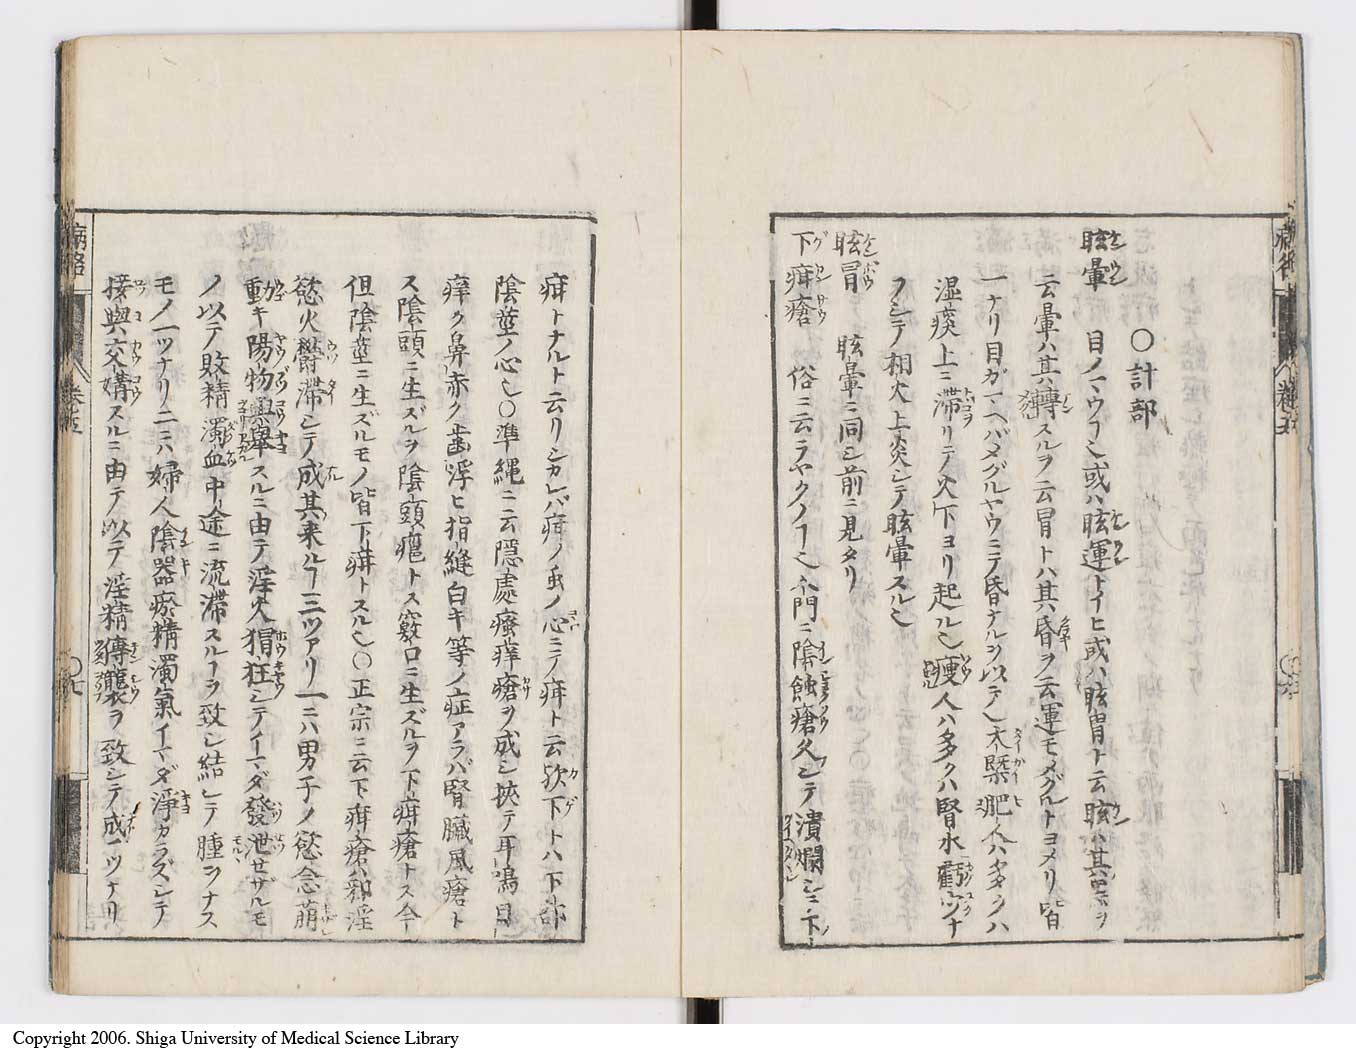 〇計部
眩暈 目ノマウフ乄或ハ眩運トイヒ或ハ眩冒ト云眩ハ其黒ヲ
云暈ハ其轉スルヲ云冒トハ其昏ヲ云運モメグルトヨメリ皆
一ナリ目ガマヘバメグルヤウニテ昏ナルヿヲ以テ乄大槩肥人ハ多クハ
湿痰上ニ滞リテ火下ヨリ起ル乄痩人ハ多クハ腎水虧ヿツナ
クシテ相火上炎シテ眩暈スル乄
眩冒 眩暈ニ同シ前ニ見タリ
下疳瘡 俗ニ云ラヤクノヿ乄入門ニ陰蝕瘡久シテ潰爛シ下
疳トナルト云リシカレバ疳ノ虫ノ心ニテ疳ト云欤下トハ下部
陰莖ノ心乄〇準縄ニ云隠處瘙痒瘡ヲ成シ挾テ耳鳴目
痒ク鼻赤ク歯浮ヒ指縫白キ等ノ症アラバ腎臓風瘡ト
ス陰頭ニ生ズルヲ陰頭瘡トス竅口ニ生ズルヲ下疳瘡トス今
但陰莖ニ生ズルモノ皆下疳トスル乄〇正宗ニ云下疳瘡ハ邪淫
慾火鬱滞シテ成其来ルヿ三ツアリ一ニハ男子ノ慾念萌
動キ陽物興舉スルニ由テ淫火猖狂シテイマダ發泄セザルモ
ノ以テ敗精濁血中途ニ流滞スルヿヲ致シ結シテ腫ヲナス
モノ一ツナリ二ニハ婦人陰器瘀精濁氣イマダ淨カラズシテ
接與交媾スルニ由テ以テ淫精傳襲ヲ致シテ成一ツナリ